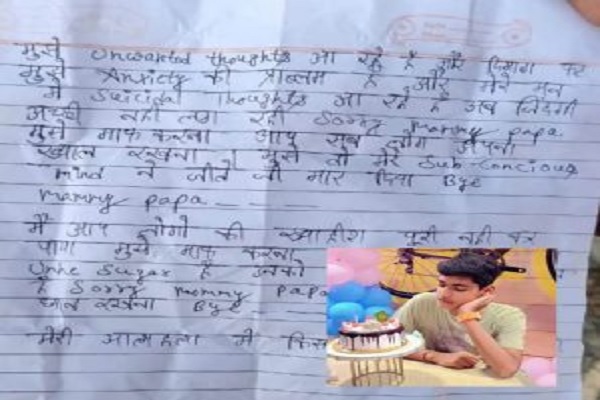 मुझे Unwanted thoughts आ रहे है और दिमाग पर
मुझे Anxiety की प्राब्लम है और मेरे मन
मे Suicidal thoughts आ रहे है अब जिंदगी
अच्छी नही लग रही Sorry mammy papa
मुझे माफ करना आप सब लोग अपना
ख्याल रखना । मुझे तो मेरे Sub-Concious
mind ने जीते जी मार दिया Bye
mammy papa
मै आप लोगो की ख्वाहीश पूरी नही कर
पापा मुझे माफ करना
Sugar है उनको
है Sorry mommy papa
रखना Bye
मेरी आत्महत्या मे